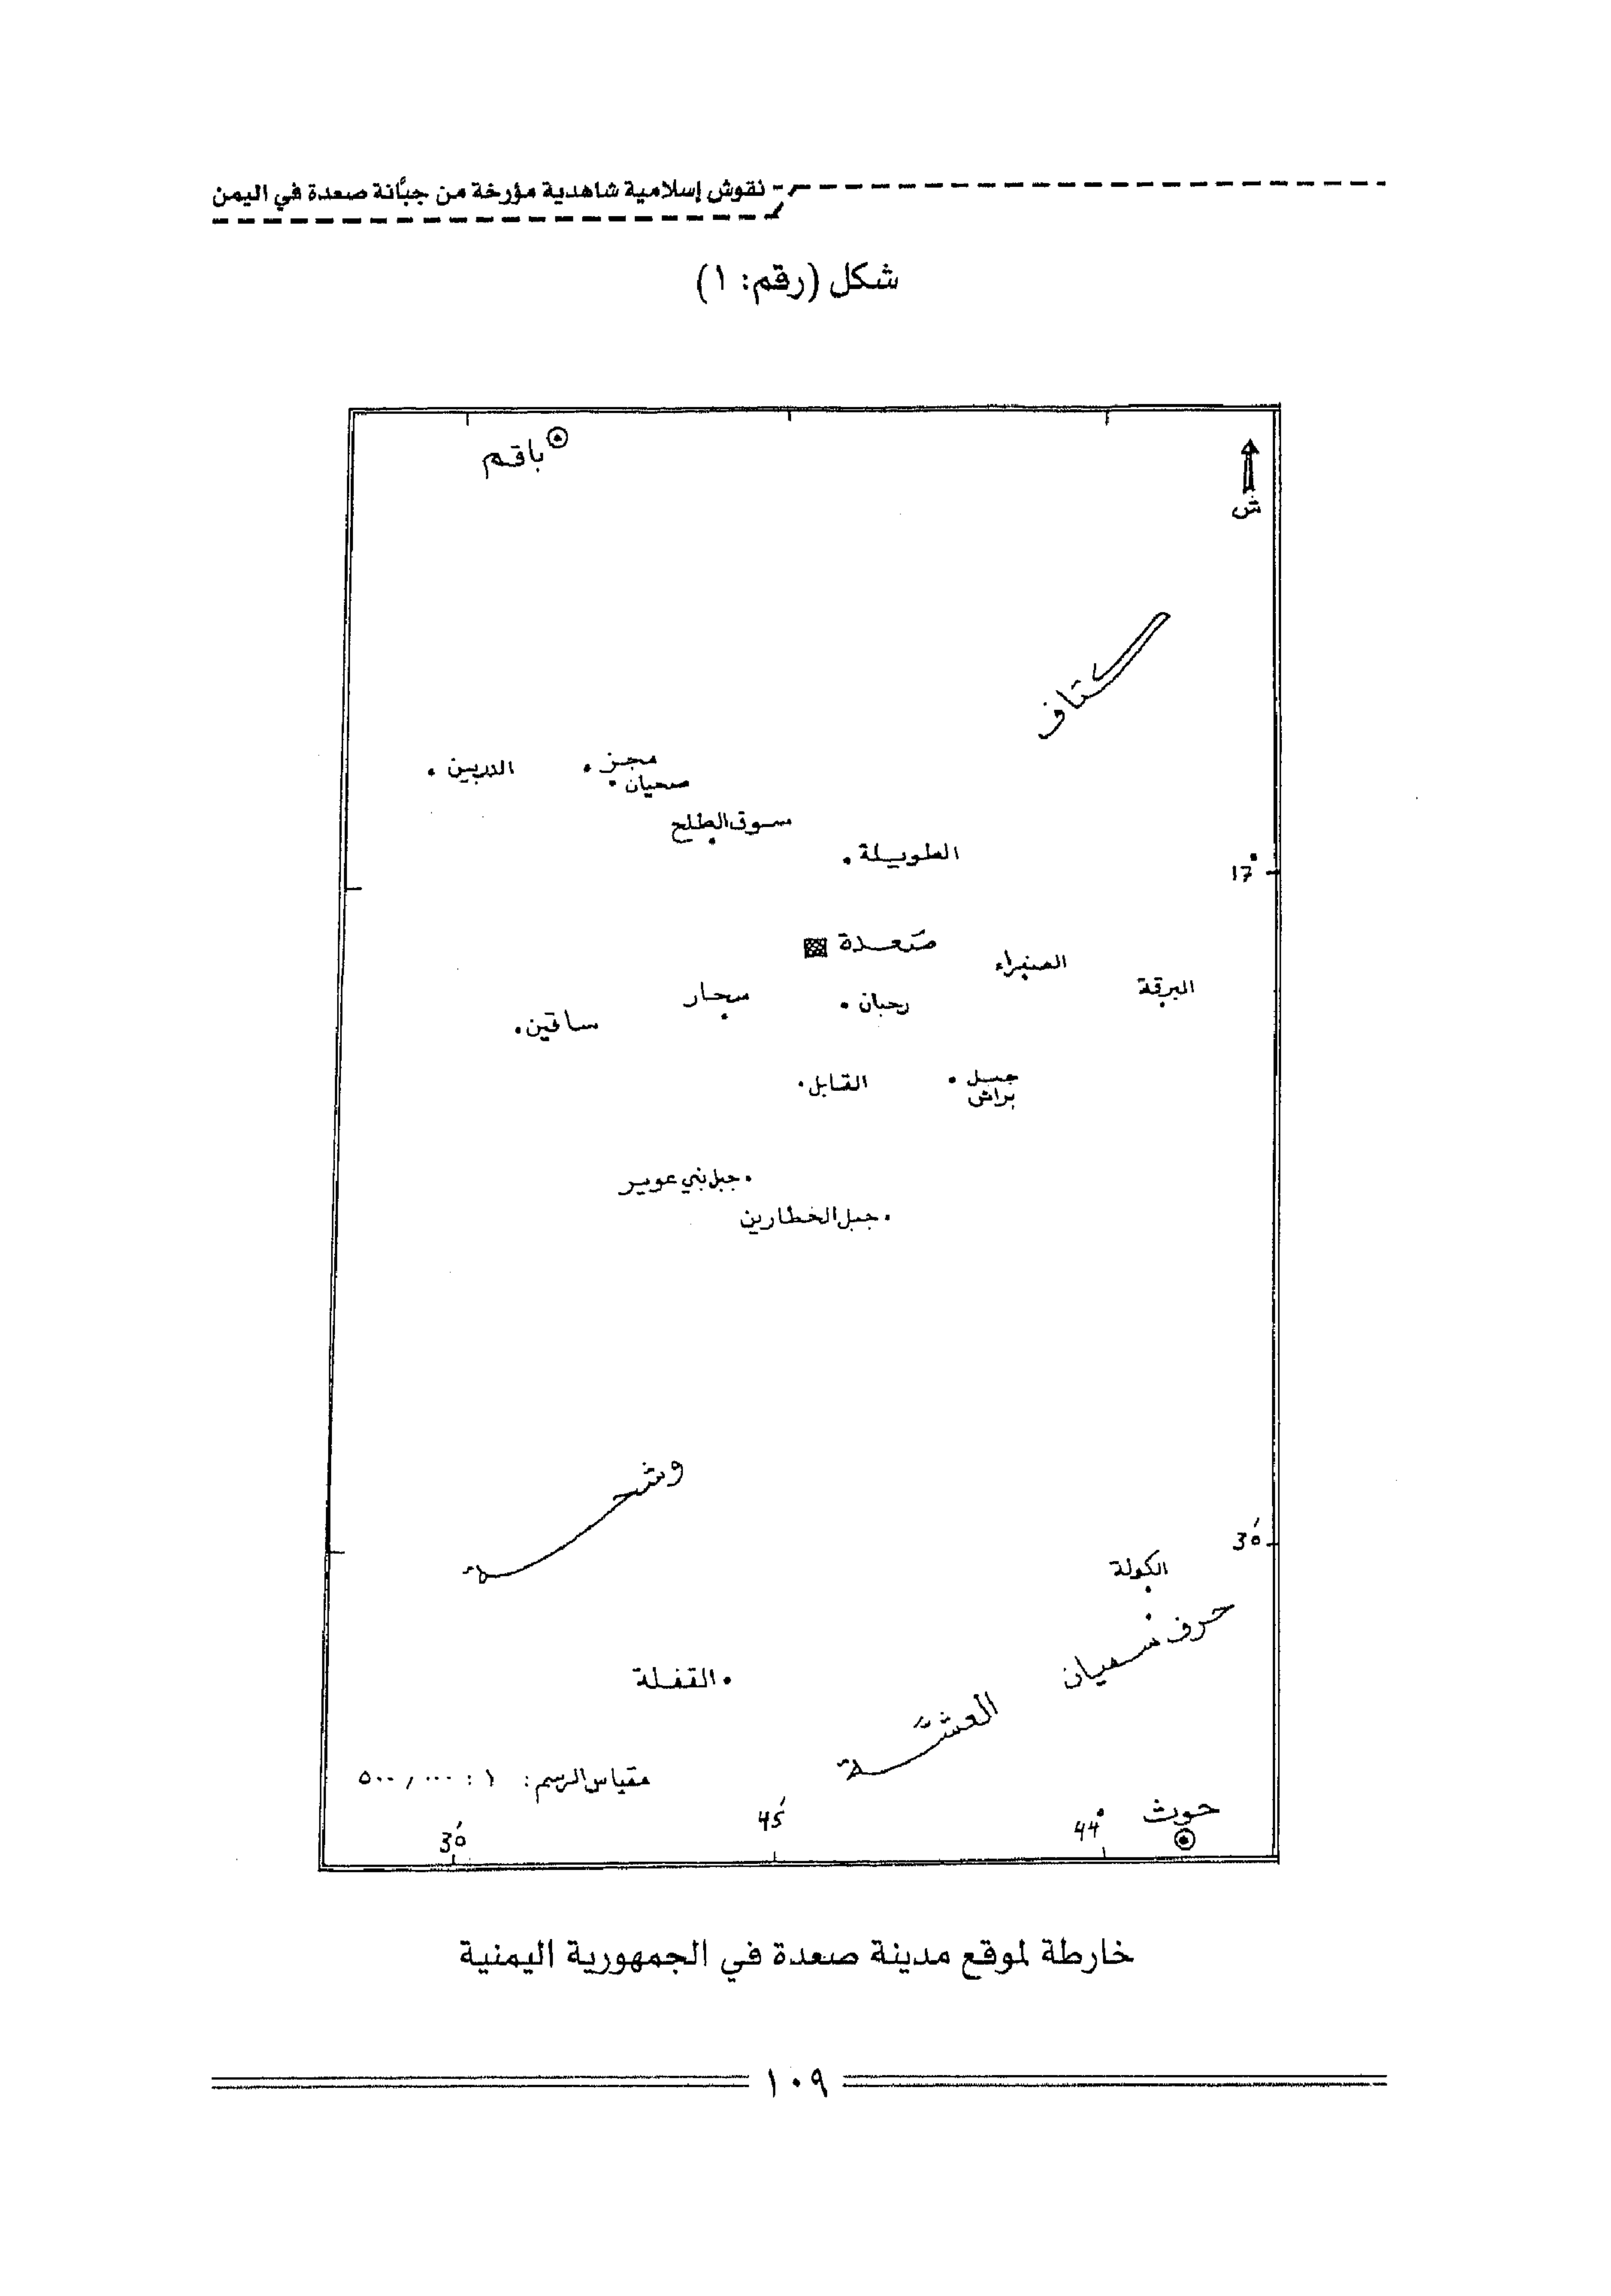 نقوش إسلامية شاهدية مؤرخة من جبَّانة صعدة في اليمن
شكل (رقم: ١)
باقم
ش
كتاف
مجز
الدربين
صحيان
سوق الطلح
الطويلة
17°
صَعدة
الصفراء
البرقة
سحار
رحبان
ساقين
القابل
جبل
براش
جبل بني عوير
جبل الخطارين
وشحة
30'
الكولة
حرف سفيان
القفلة
العشَّة
مقياس الرسم: ١ : ٥٠٠,٠٠٠
حوث
30'
45'
44°
خارطة لموقع مدينة صعدة في الجمهورية اليمنية
١٠٩